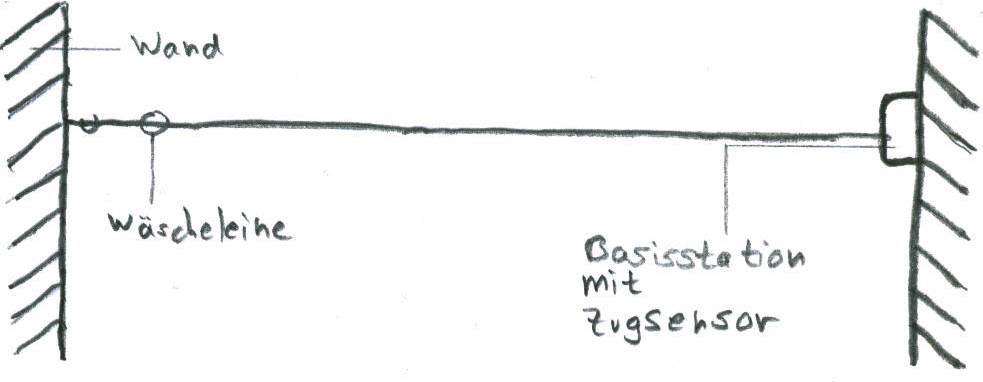 Wand
Wäscheleine
Basisstation
mit
Zugsensor